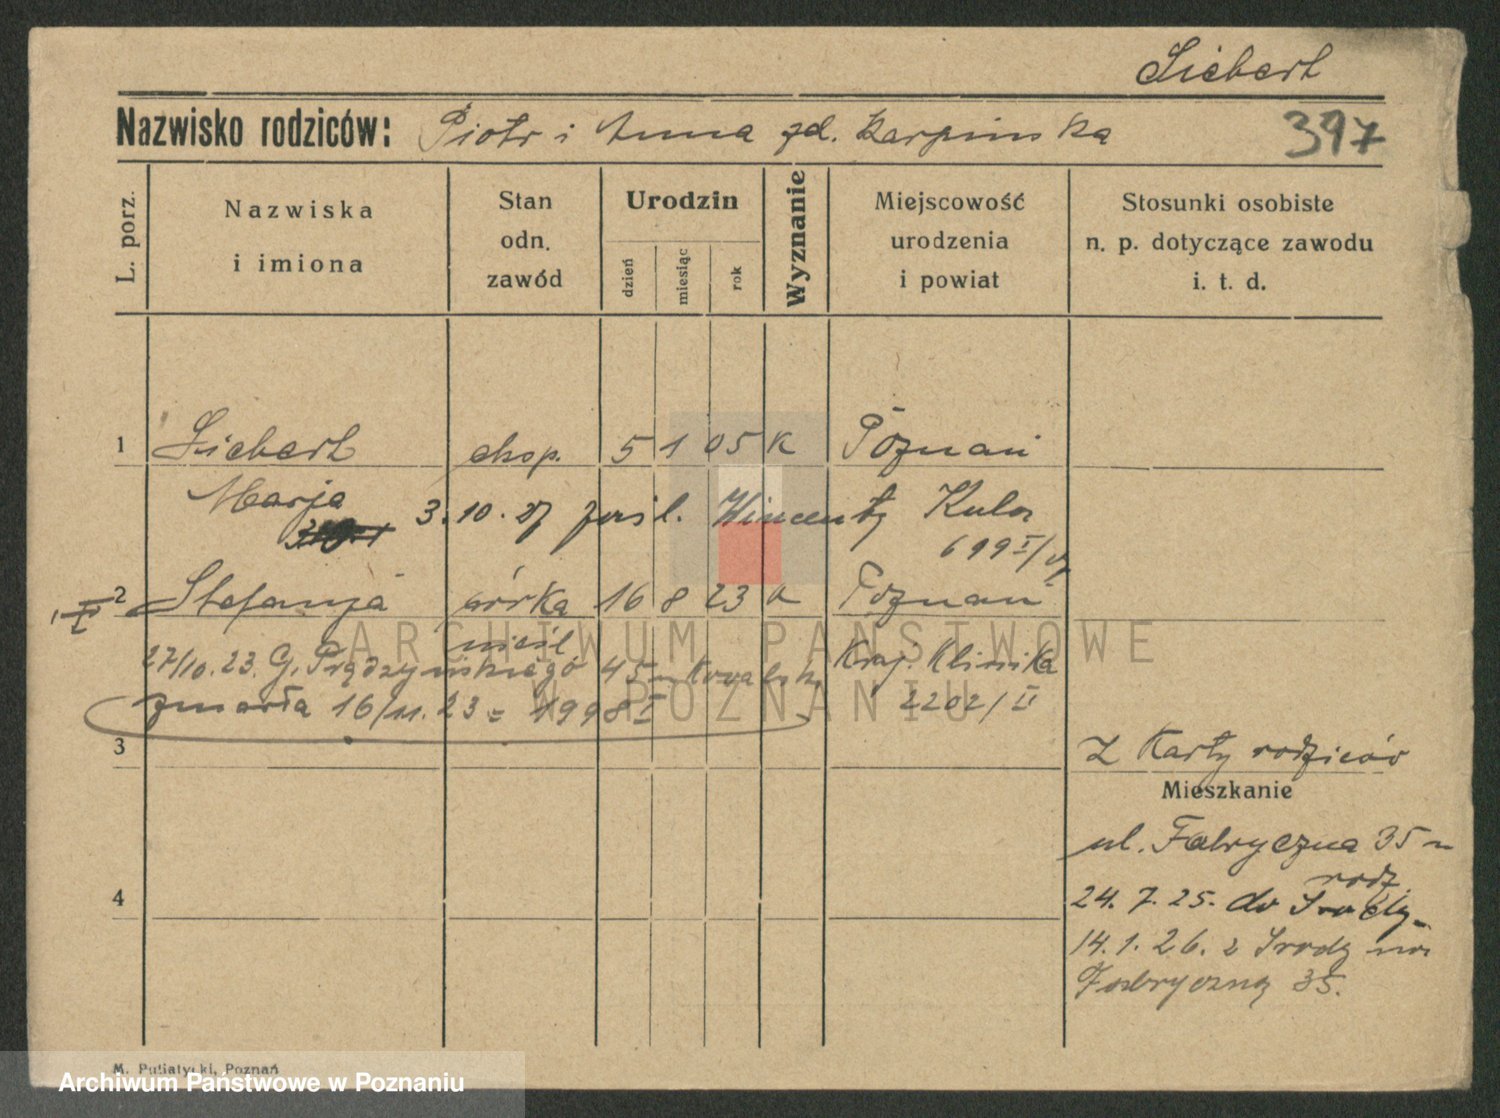 Siebert
Nazwisko rodziców: Piotr i Anna zd. Karpinska
397
L. porz.
Nazwiska
i imiona
Stan
odn.
zawód
Urodzin
dzień
miesiąc
rok
Wyznanie
Miejscowość
urodzenia
i powiat
Stosunki osobiste
n. p. dotyczące zawodu
i. t. d.
1 Siebert eksp. 5 1 05 K Poznań
Marja 3.10.27 zaśl. Wincenty
699 I/27
2 Stefanja córka 16 8 23 K Poznań
nieśl
27/10.23. G. Prądzyńskiego 45 Kraj. Klinika
zmarła 16/11.23 = 1998 I 2202/II
3
Z Karty rodziców
Mieszkanie
ul. Fabryczna 35
rodz.
4
24.7.25. do Środy
14.1.26. z Środy na
Fabryczną 35.
ARCHIWUM PAŃSTWOWE
W POZNANIU
M. Putiatycki, Poznań
Archiwum Państwowe w Poznaniu